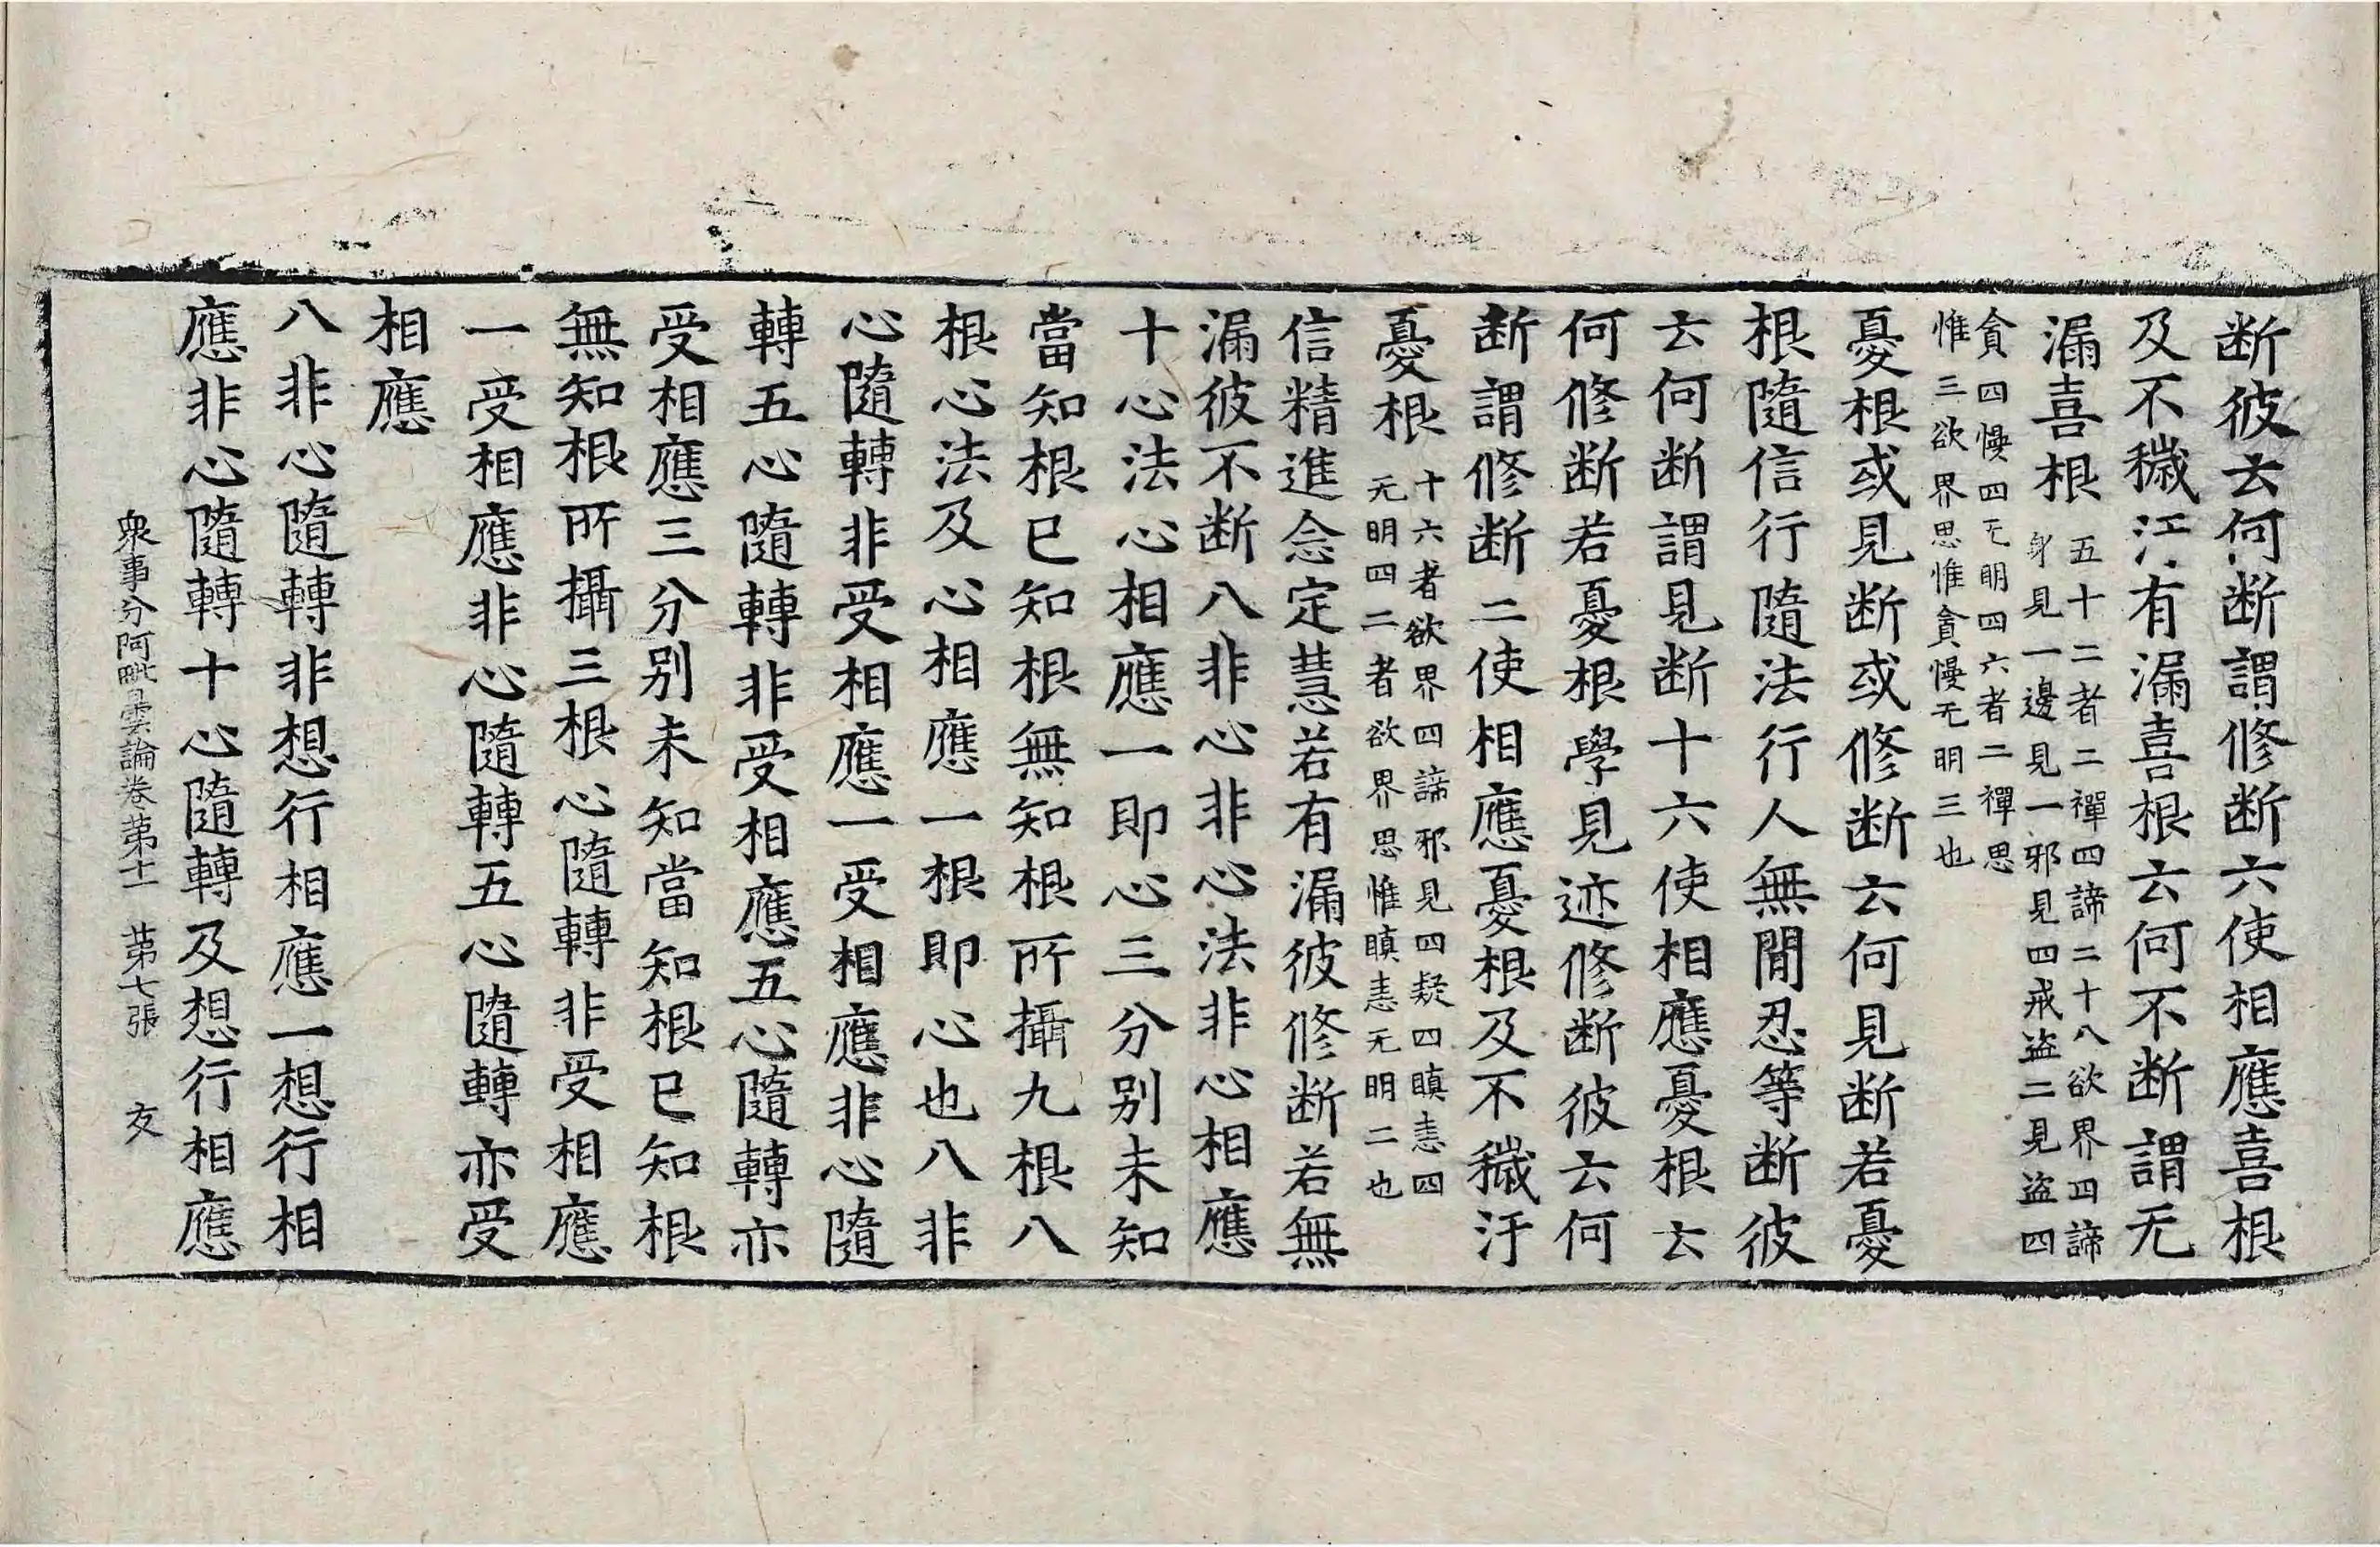 断彼云何断謂修断六使相應喜根
及不穢汙有漏喜根云何不断謂无
漏喜根
五十二者二禪四諦二十八欲界四諦
身見一邊見一邪見四戒盗二見盗四
貪四慢四无明四六者二禪思
惟三欲界思惟貪慢无明三也
憂根或見断或修断云何見断若憂
根隨信行隨法行人無閒忍等断彼
云何断謂見断十六使相應憂根云
何修断若憂根學見迹修断彼云何
断謂修断二使相應憂根及不穢汙
憂根
十六者欲界四諦邪見四疑四瞋恚四
无明四二者欲界思惟瞋恚无明二也
信精進念定慧若有漏彼修断若無
漏彼不断八非心非心法非心相應
十心法心相應一即心三分别未知
當知根已知根無知根所攝九根八
根心法及心相應一根即心也八非
心隨轉非受相應一受相應非心隨
轉五心隨轉非受相應五心隨轉亦
受相應三分别未知當知根已知根
無知根所攝三根心隨轉非受相應
一受相應非心隨轉五心隨轉亦受
相應
八非心隨轉非想行相應一想行相
應非心隨轉十心隨轉及想行相應
衆事分阿毗曇論卷苐十一 苐七張 友